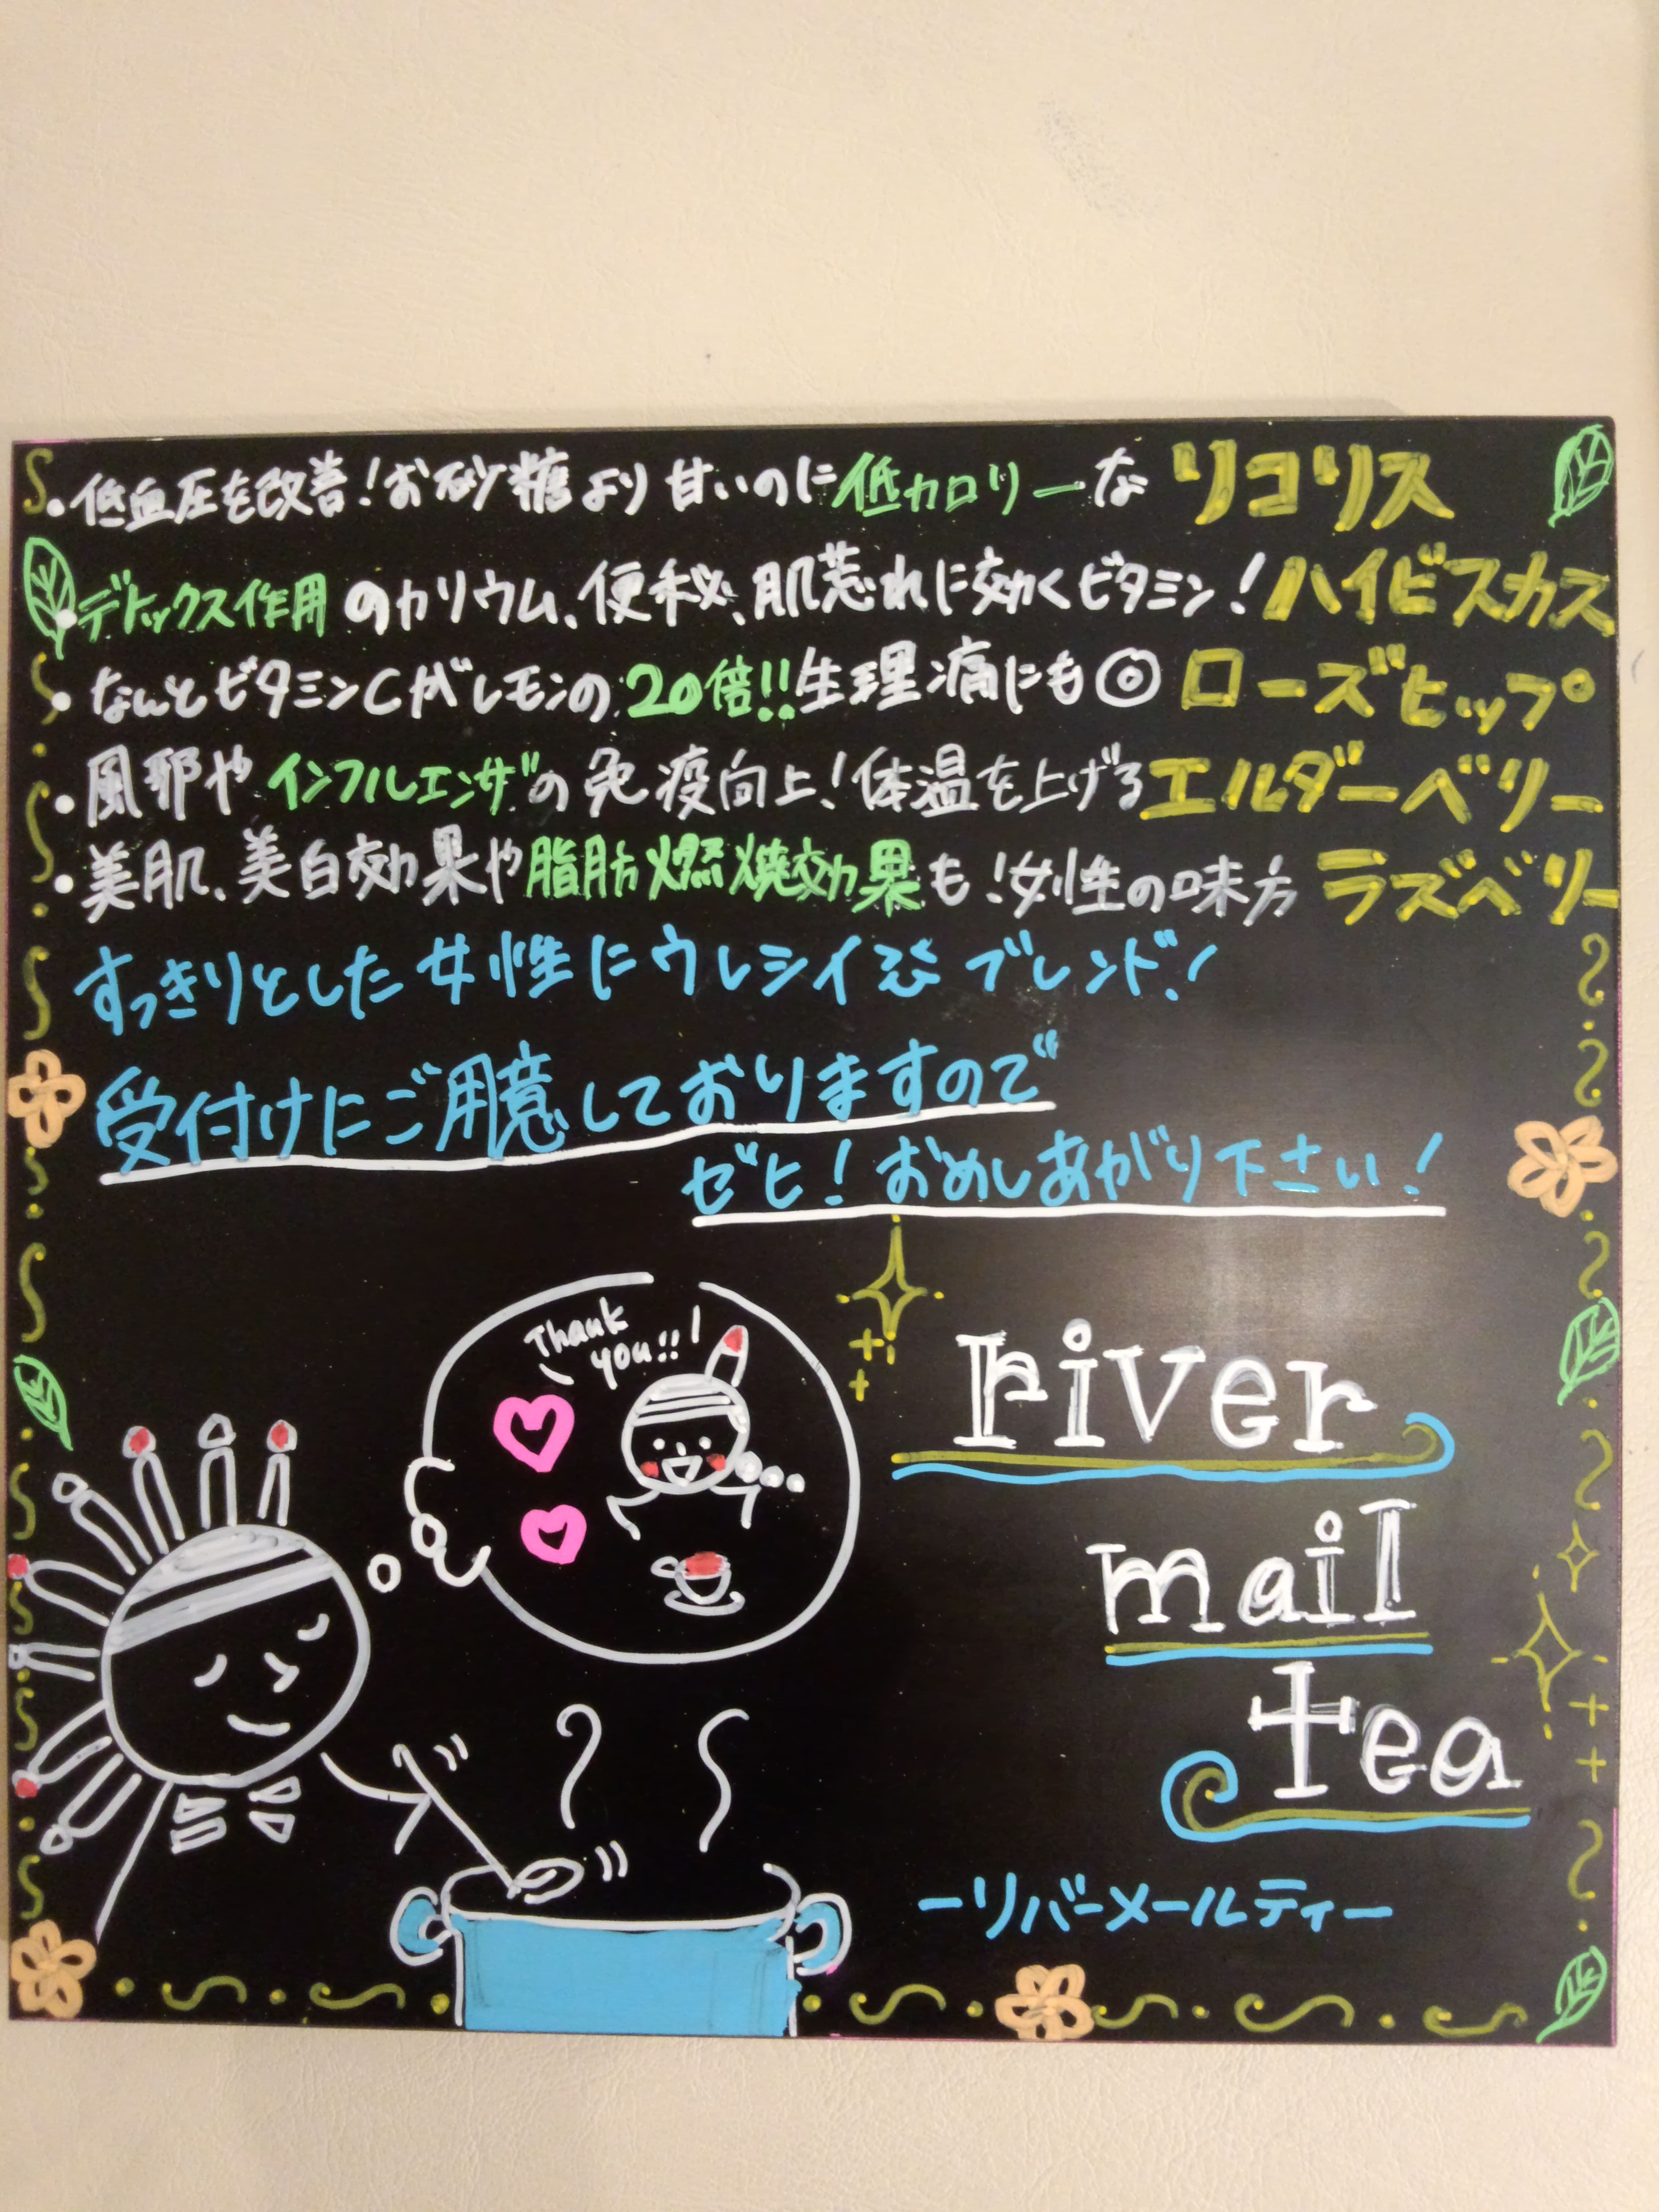 ・低血圧を改善!お砂糖より甘いのに低カロリーな リコリス
・デトックス作用のカリウム、便秘、肌荒れに効くビタミン!ハイビスカス
・なんとビタミンCがレモンの20倍!!生理痛にも◎ ローズヒップ
・風邪やインフルエンザの免疫向上!体温を上げるエルダーベリー
・美肌、美白効果や脂肪燃焼効果も!女性の味方 ラズベリー
すっきりとした女性にウレシイ ブレンド!
受付けにご用意しておりますので
ゼヒ!おめしあがり下さい!
Thank
you!!
river
mail
tea
ーリバーメールティー